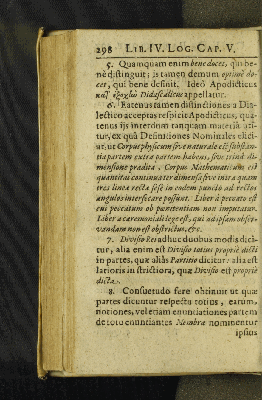 298 LIB. IV. LOG. CAP. V.
5. Quamquam enim bene docet, qui be-
nè distinguit; is tamen demum optimè do-
cet, qui bene definit. Ideò Apodicticus
κατ' ἐξοχὴν Didascalicus appellatur.
6. Eatenus tamen distinctiones à Dia-
lectico acceptas respicit Apodicticus, qua-
tenus ijs interdum tanquam materiâ uti-
tur, ex quâ Definitiones Nominales effici-
ut Corpus physicum sive naturale est substan-
tia partem extra partem habens, sive trinâ di-
mensione prædita. Corpus Mathematicum est
quantitas continua ter dimensa sive intra quam
tres lineæ rectæ sese in eodem puncto ad rectos
angulos intersecare possunt. Liber à peccato est
cui peccatum ob pœnitentiam non imputatur.
Liber à ceremoniali lege est, qui ad ipsam obser-
vandam non est obstrictus, &c.
7. Divisio Rei adhuc duobus modis dici-
tur, alia enim est Divisio totius propriè dicti
in partes, quæ aliàs Partitio dicitur: alia est
latioris in strictiora, quæ Divisio est propriè
dicta.
8. Consuetudo fere obtinuit ut quæ
partes dicuntur respectu totius, earum,
notiones, vel etiam enunciationes partem
de toto enuntiantes, Membra nominentur
ipsius